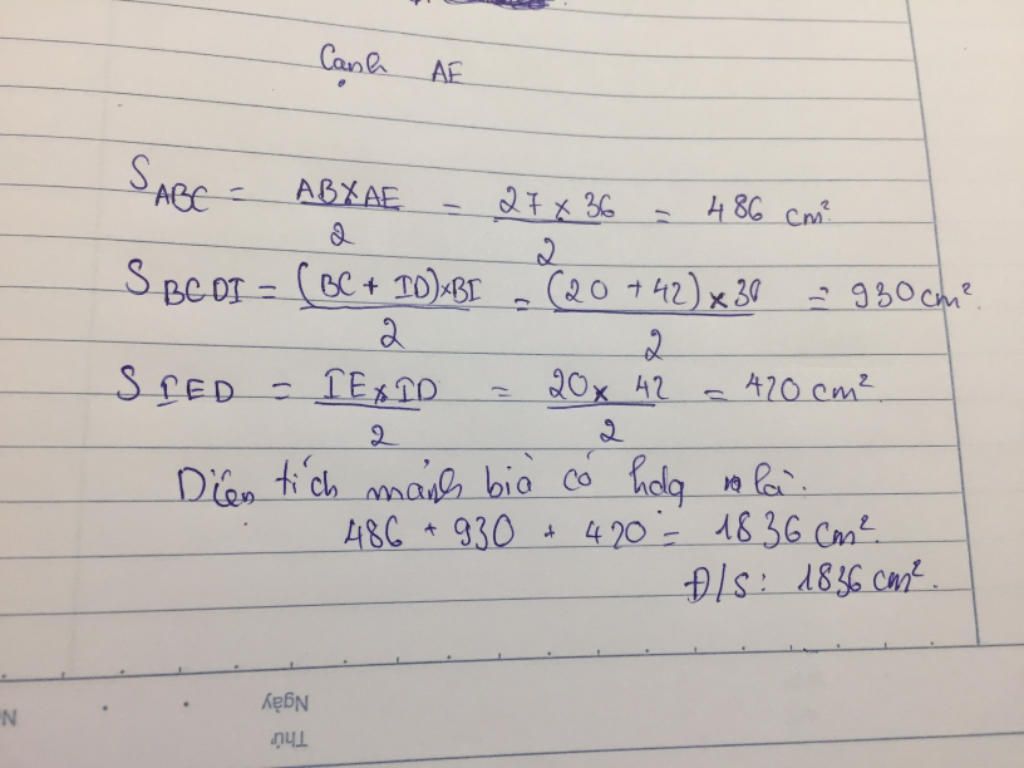 Cạnh AE
S ABC = AB x AE / 2 = 27 x 36 / 2 = 486 cm²
S BCDI = (BC + ID) x BI / 2 = (20 + 42) x 30 / 2 = 930 cm².
S IED = IE x ID / 2 = 20 x 42 / 2 = 420 cm².
Diện tích mảnh bìa có hdg là:
486 + 930 + 420 = 1836 cm².
Đ/S: 1836 cm².
Ngày
Thứ
N